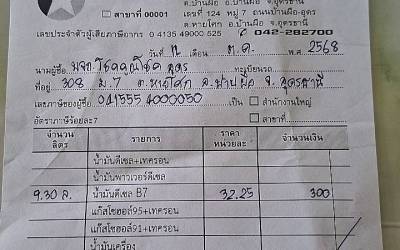 ต.บ้านผือ อ.บ้านผือ จ.อุดรธานี
สาขาที่ 00001
เลขที่ 124 หมู่ 7 ถนนบ้านผือ-อุดร
ต.หายโศก อ.บ้านผือ จ.อุดรธานี
เลขประจำตัวผู้เสียภาษีอากร 0 4135 49000 525
042-282700
วันที่ ต.ค. พ.ศ. 2568
นามผู้ซื้อ อุดร ทะเบียนรถ
ที่อยู่ 308 ม.7 ต.หายโศก อ.บ้านผือ จ.อุดรธานี
เลขภาษีของผู้ซื้อ 0415554000050 เป็น สำนักงานใหญ่
อัตราภาษีร้อยละ7 สาขาที่
จำนวนลิตร รายการ ราคาหน่วยละ จำนวนเงิน
น้ำมันดีเซล+เทครอน
น้ำมันพาวเวอร์ดีเซล
9.30 ล. น้ำมันดีเซล B7 32.25 300
แก๊สโซฮอล์95+เทครอน
แก๊สโซฮอล์91+เทครอน
น้ำมันเครื่อง